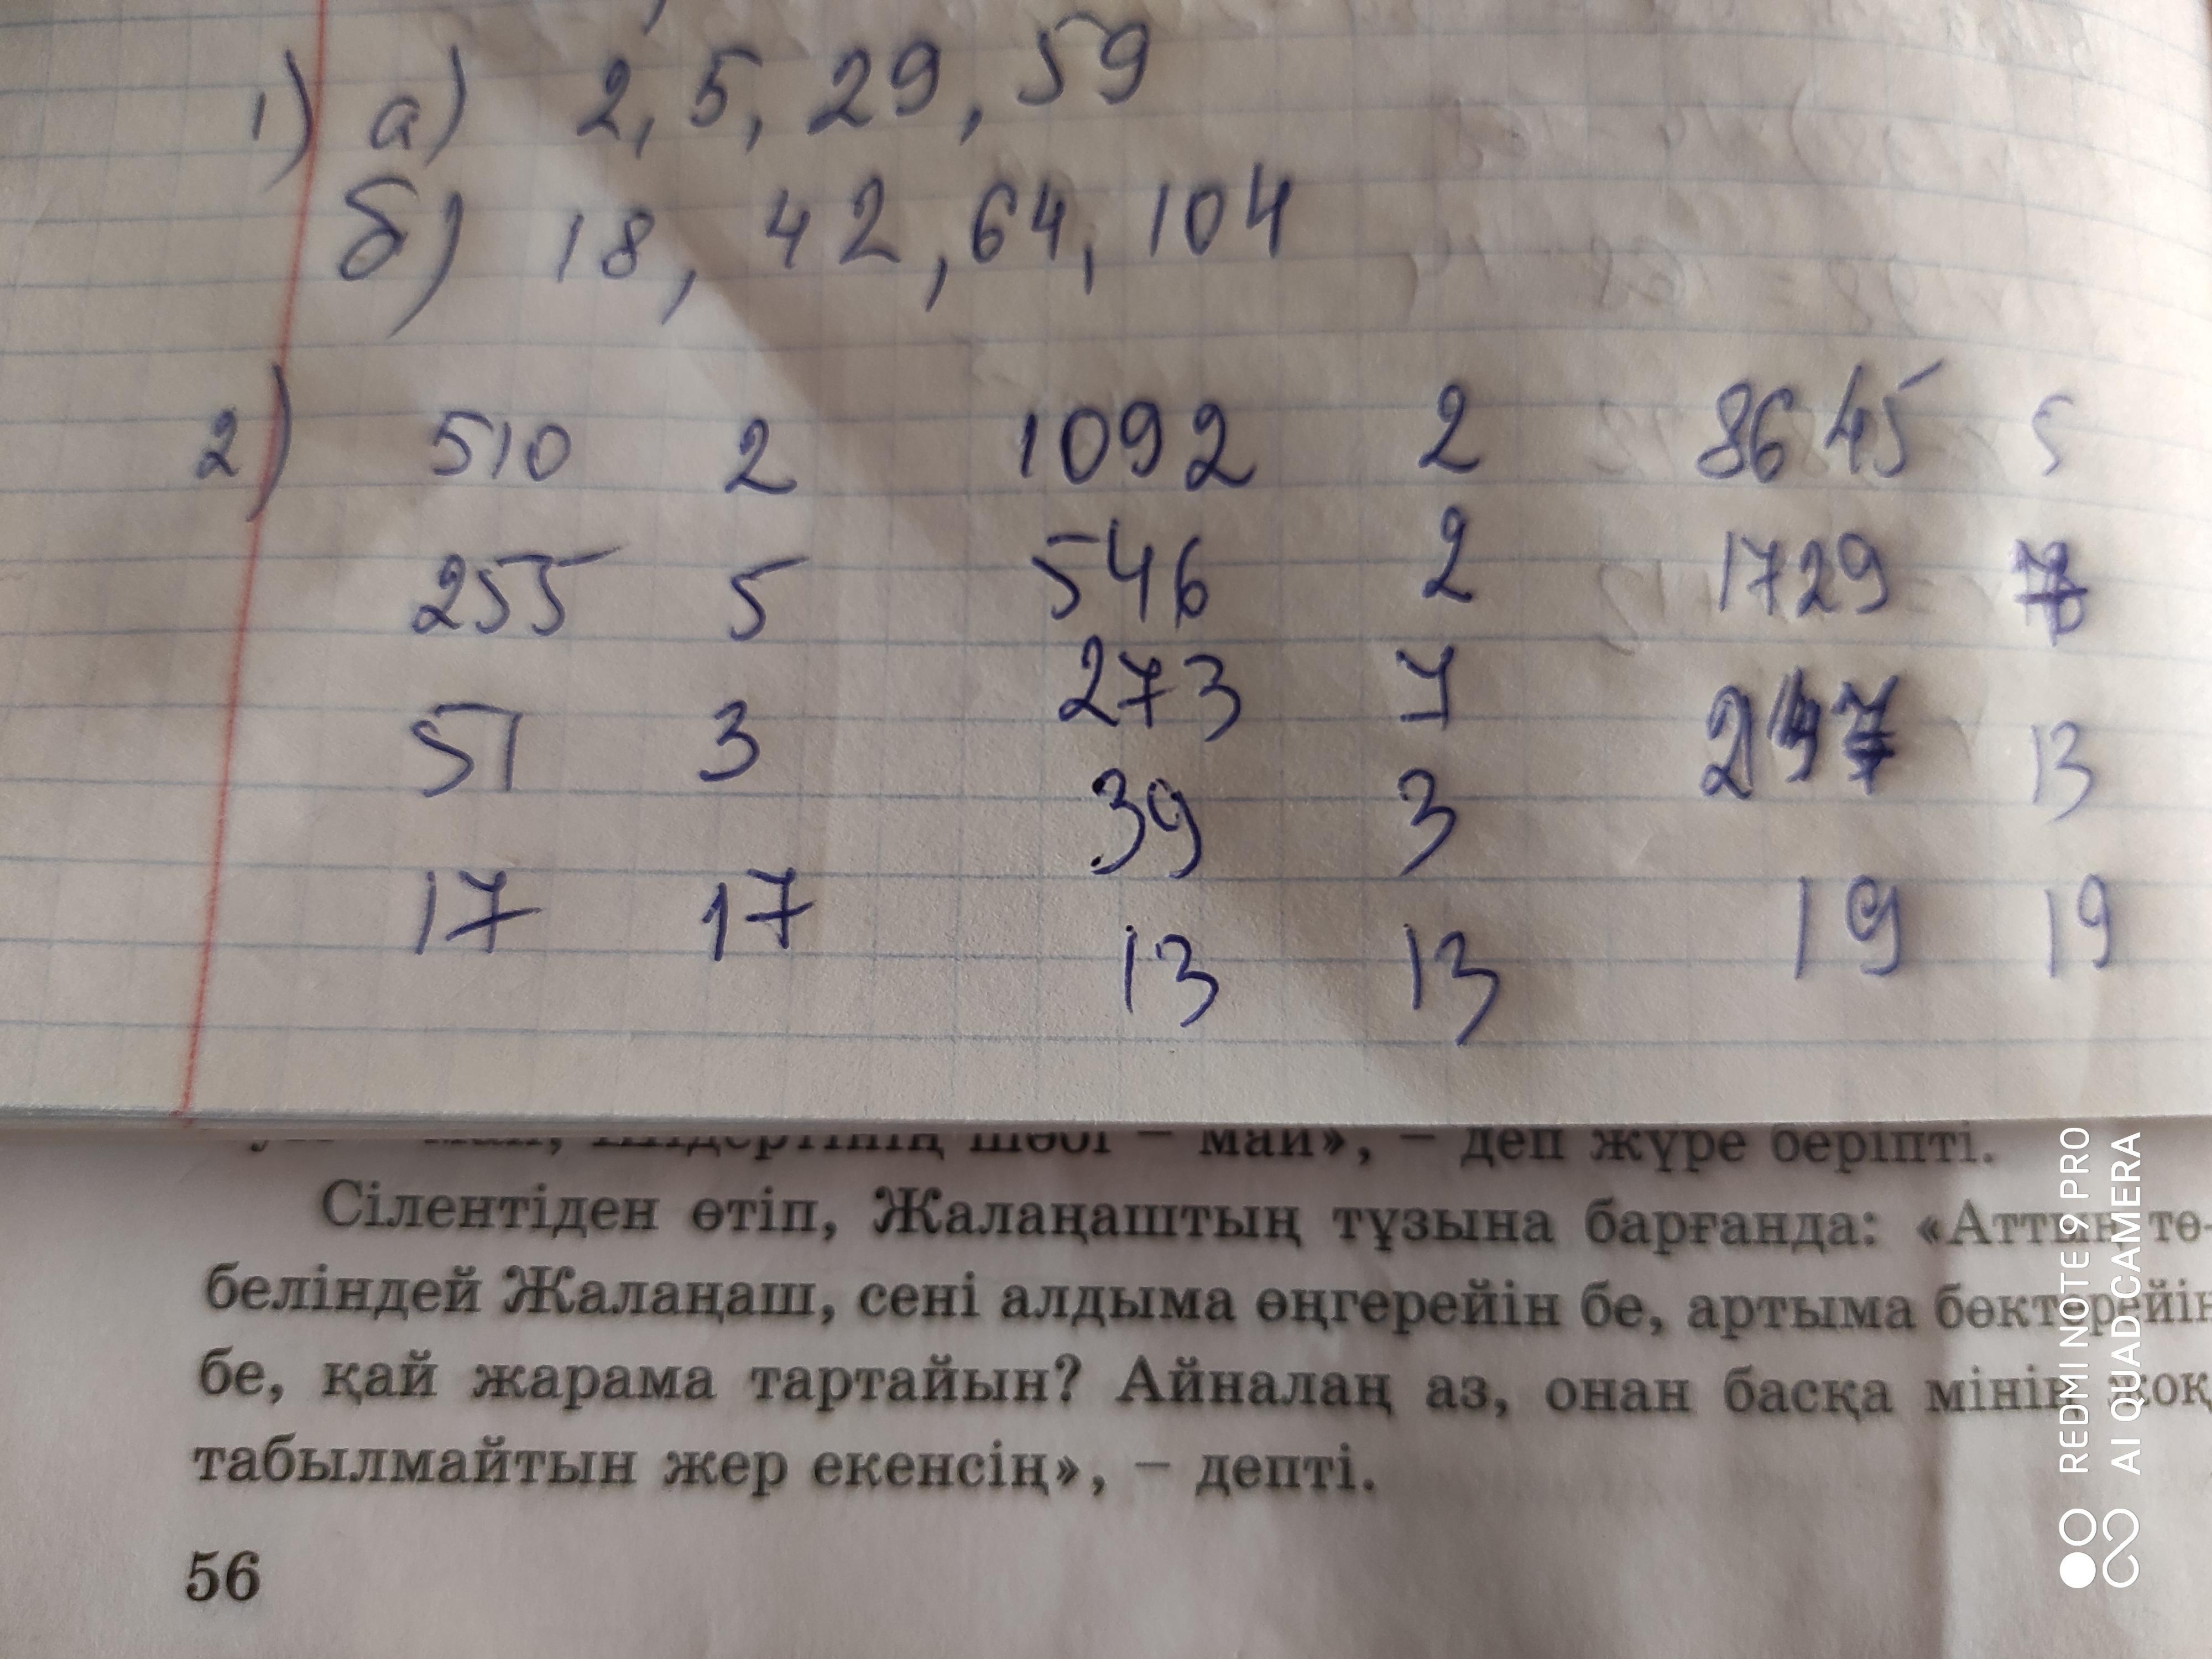 1) а) 2, 5, 29, 59
б) 18, 42, 64, 104
2) 510 2 1092 2 8645 5
255 5 546 2 1729 7
51 3 273 7 247 13
39 3
17 17 13 13 19 19
– май», – деп жүре беріпті.
Сілентіден өтіп, Жалаңаштың тұзына барғанда: «Аттың тө-
беліндей Жалаңаш, сені алдыма өңгерейін бе, артыма бөктерейін
бе, қай жарама тартайын? Айналаң аз, онан басқа мінің жоқ,
табылмайтын жер екенсің», – депті.
56
REDMI NOTE 9 PRO
AI QUAD CAMERA